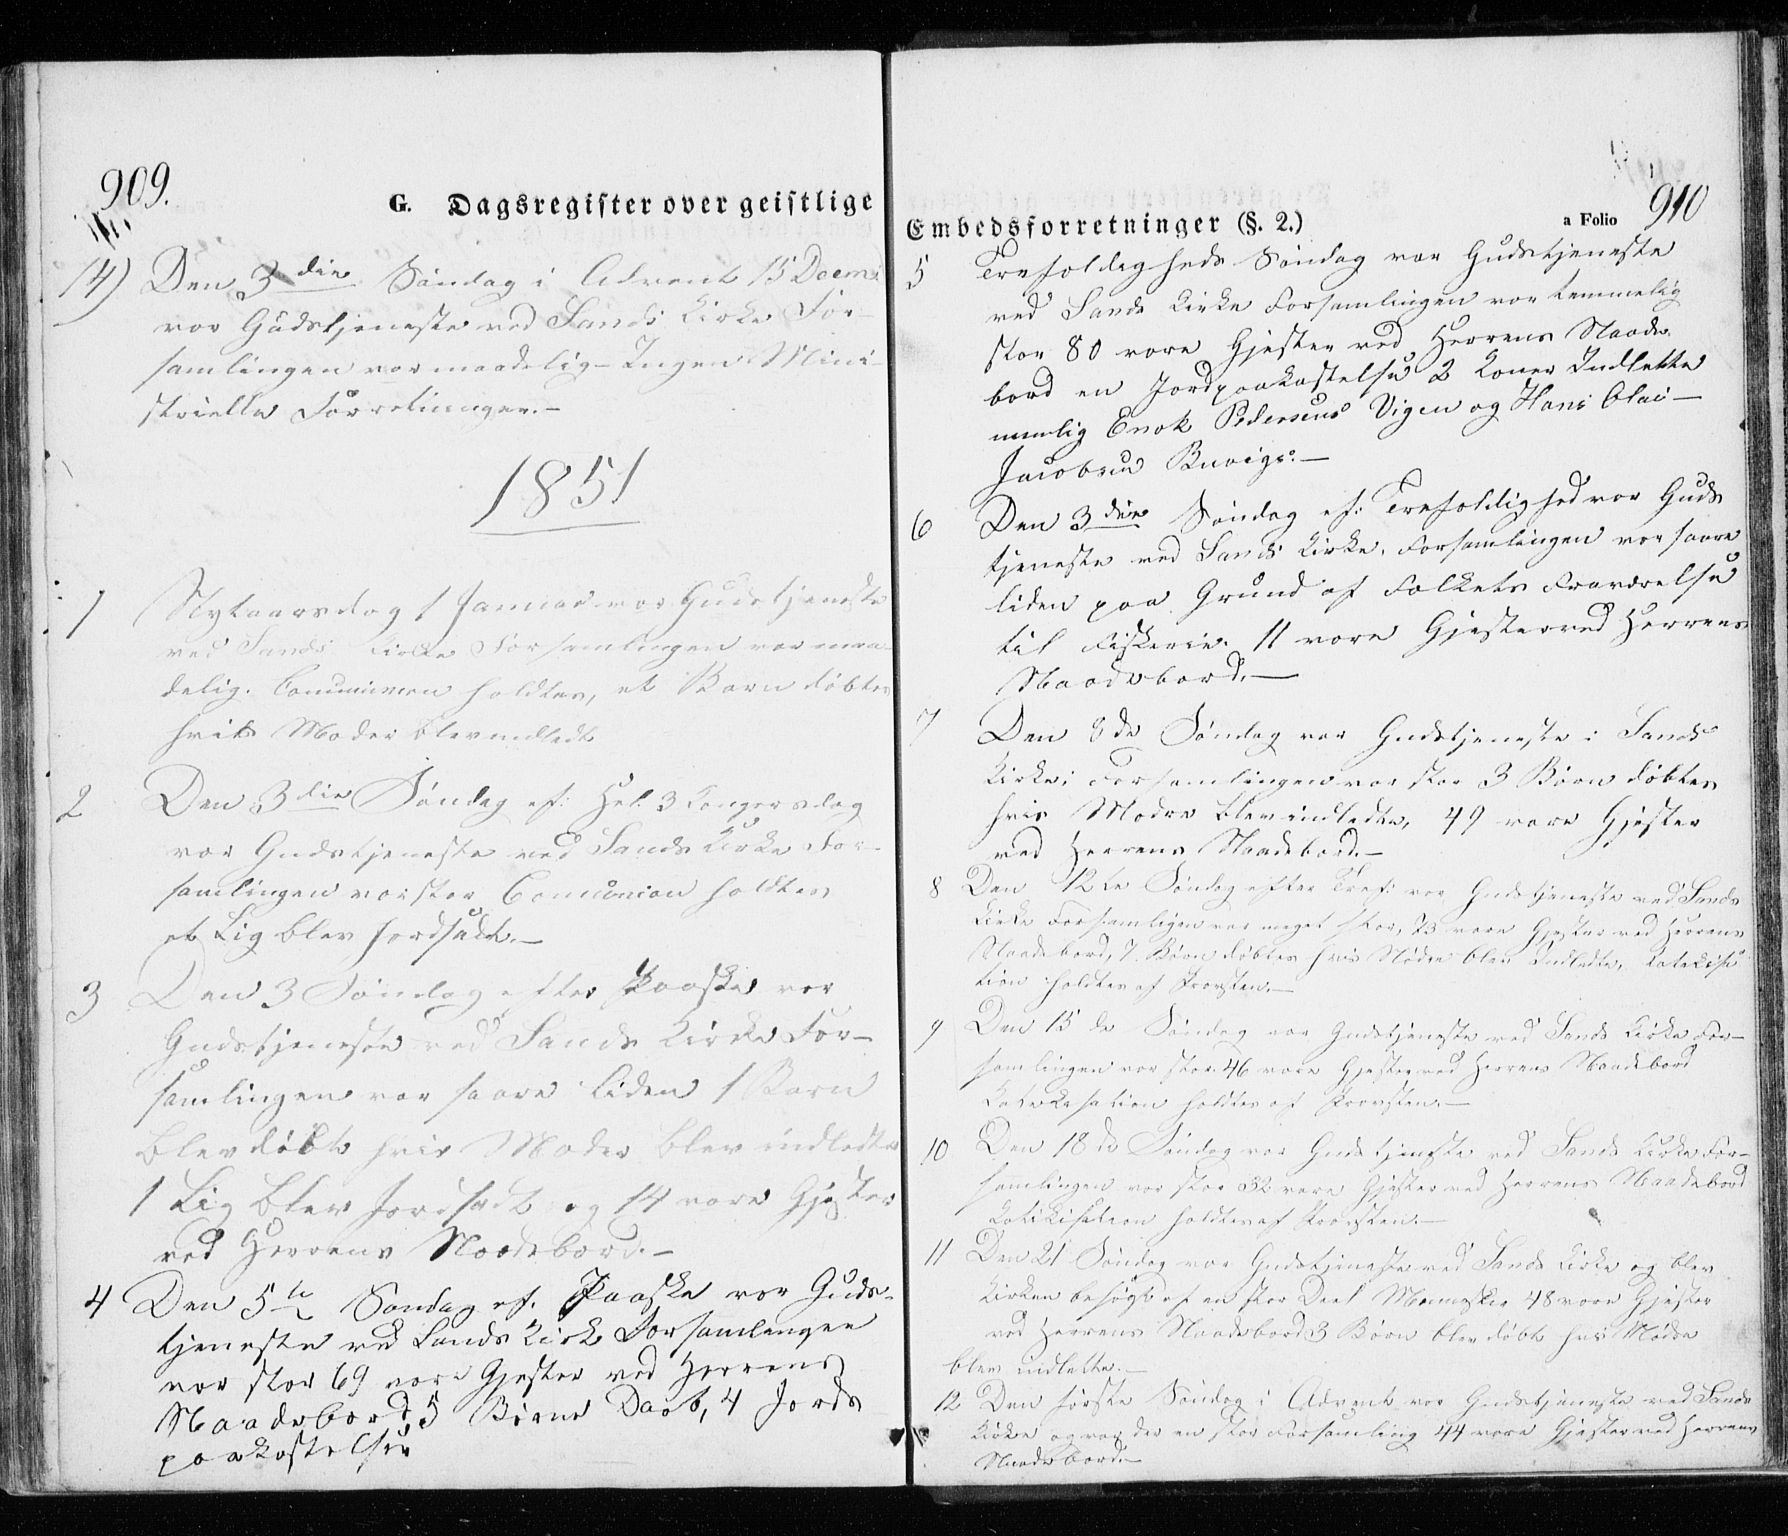 909.
G. Dagsregister over geistlige
14) Den 3die Søndag i Advent 15 Decem:
var Gudstjeneste ved Sands Kirke For-
samlingen var maadelig – Ingen Mini-
strielle Forretninger. –
1851
1 Nytaarsdag 1 Januar var Gudstjeneste
ved Sands Kirke Forsamlingen var maa-
delig. Communion holdtes, et Barn døbtes
hvis Moder blev indledt
2 Den 3die Søndag ef: Hel. 3 Kongersdag
var Gudstjeneste ved Sands Kirke For-
samlingen var stor Comunion holdtes
et Lig blev Jordfæst. –
3 Den 3 Søndag efter Paaske var
Gudstjeneste ved Sands Kirke For-
samlingen var saare liden 1 Barn
blev døbt hvis Moder blev indledt
1 Lig blev Jordfæst og 14 vare Gjester
ved Herrens Naadebord. –
4 Den 5te Søndag ef. Paaske var Guds-
tjeneste ved Sands Kirke Forsamlingen
var stor 69 vare Gjester ved Herrens
Naadebord, 5 Børns Daab, 4 Jords
paakastelser
Embedsforretninger (§. 2.)
a Folio 910
5 Trefoldigheds Søndag var Gudstjeneste
ved Sands Kirke Forsamlingen var temmelig
stor 80 vare Gjester ved Herrens Naade
bord en Jordpaakastelse 2 Koner Indledte
nemlig Enok Pedersens Vigen og Hans Olai –
Jacobsen –
6 Den 3die Søndag ef: Trefoldighed var Guds
tjeneste ved Sands Kirke, Forsamlingen var saare
liden paa Grund af Folkets Fraværelse
til Fiskerie. 11 vare Gjester ved Herrens
Naadebord. –
7 Den 8de Søndag var Gudstjeneste i Sands
Kirke; Forsamlingen var stor 3 Børn døbtes
hvis Mødre blev indledte, 49 vare Gjester
ved Herrens Naadebord. –
8 Den 12te Søndag efter Tref: var Gudstjeneste ved Sands
Kirke Forsamlingen var meget stor, 73 vare Gjester ved Herrens
Naadebord, 7 Børn døbtes hvis Mødre blev Indledte, Katekisa
tion holdtes af Provsten. –
9 Den 15de Søndag var Gudstjeneste ved Sands Kirke For-
samlingen var stor 46 vare Gjester ved Herrens Naadebord
Katekisation holdtes af Provsten. –
10 Den 18de Søndag var Gudstjeneste ved Sands Kirke For-
samlingen var stor 32 vare Gjester ved Herrens Naadebord
Katikisation holdtes af Provsten. –
11 Den 21 Søndag var Gudstjeneste ved Sands Kirke og blev
Kirken besøgt af en stor Deel Mennesker 48 vare Gjester
ved Herrens Naadebord 3 Børn blev døbt hvis Mødre
blev indledte. –
12 Den første Søndag i Advent var Gudstjeneste ved Sands
Kirke og var der en stor Forsamling 44 vare Gjester ved Herrens
Naadebord. –